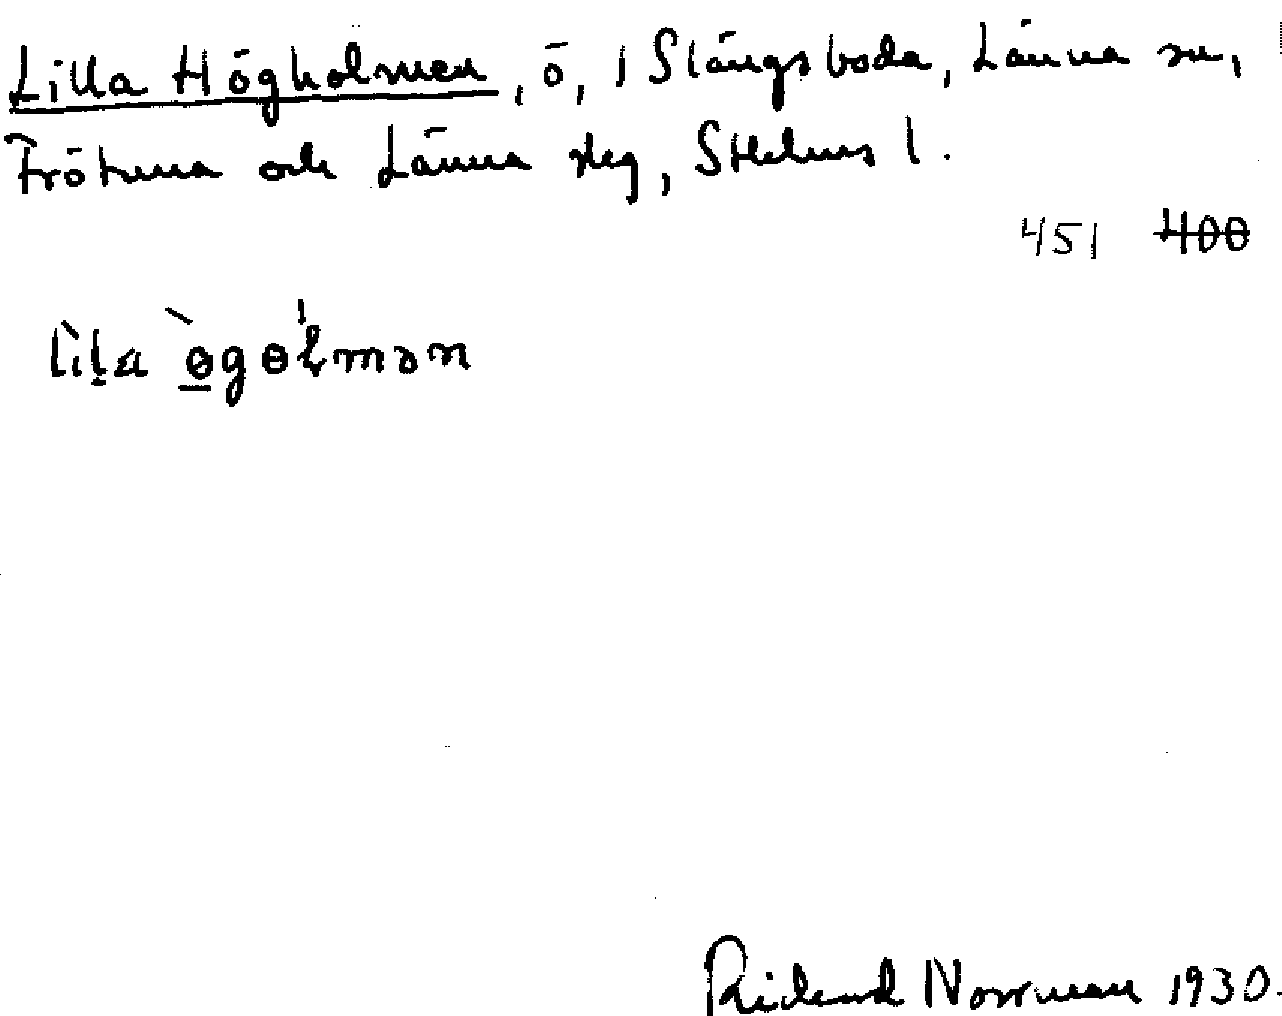 Lilla Högholmen, ö, i Slängsboda, Länna sn,
Frötuna och Länna slg, Sthlms l.
451 400
lila ögolmən
Rickard Norrman 1930.